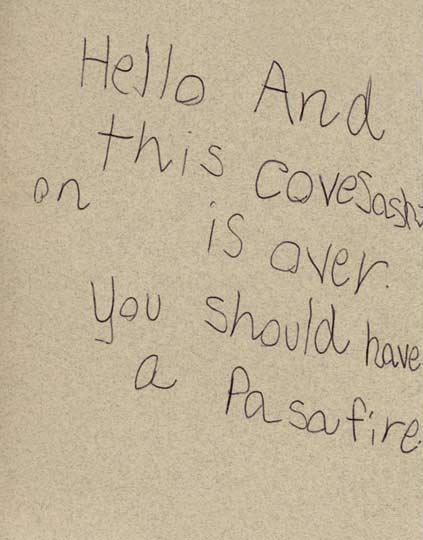 Hello And
this covesashi
on
is over.
You should have
a Pasafire.